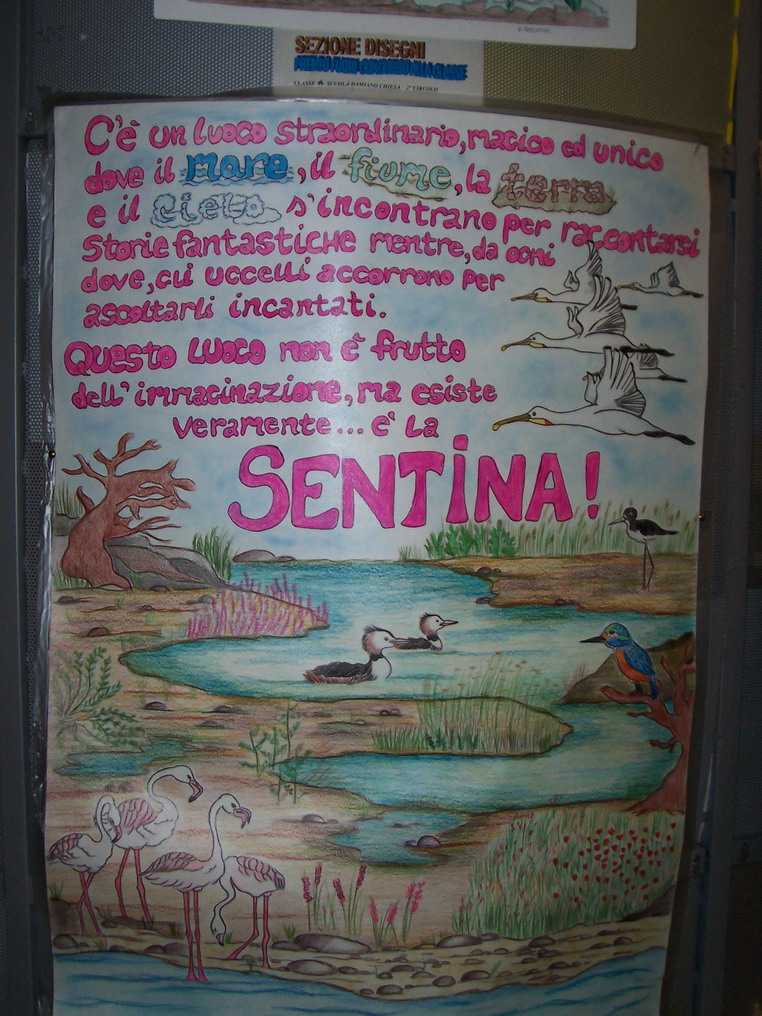 SEZIONE DISEGNI
CLASSE 4ª SCUOLA DAMIANO CHIESA - 2° CIRCOLO
C'è un luogo straordinario, magico ed unico
dove il mare, il fiume, la terra
e il cielo s'incontrano per raccontarsi
storie fantastiche mentre, da ogni
dove, gli uccelli accorrono per
ascoltarli incantati.
Questo luogo non è frutto
dell'immaginazione, ma esiste
veramente... è la
SENTINA!